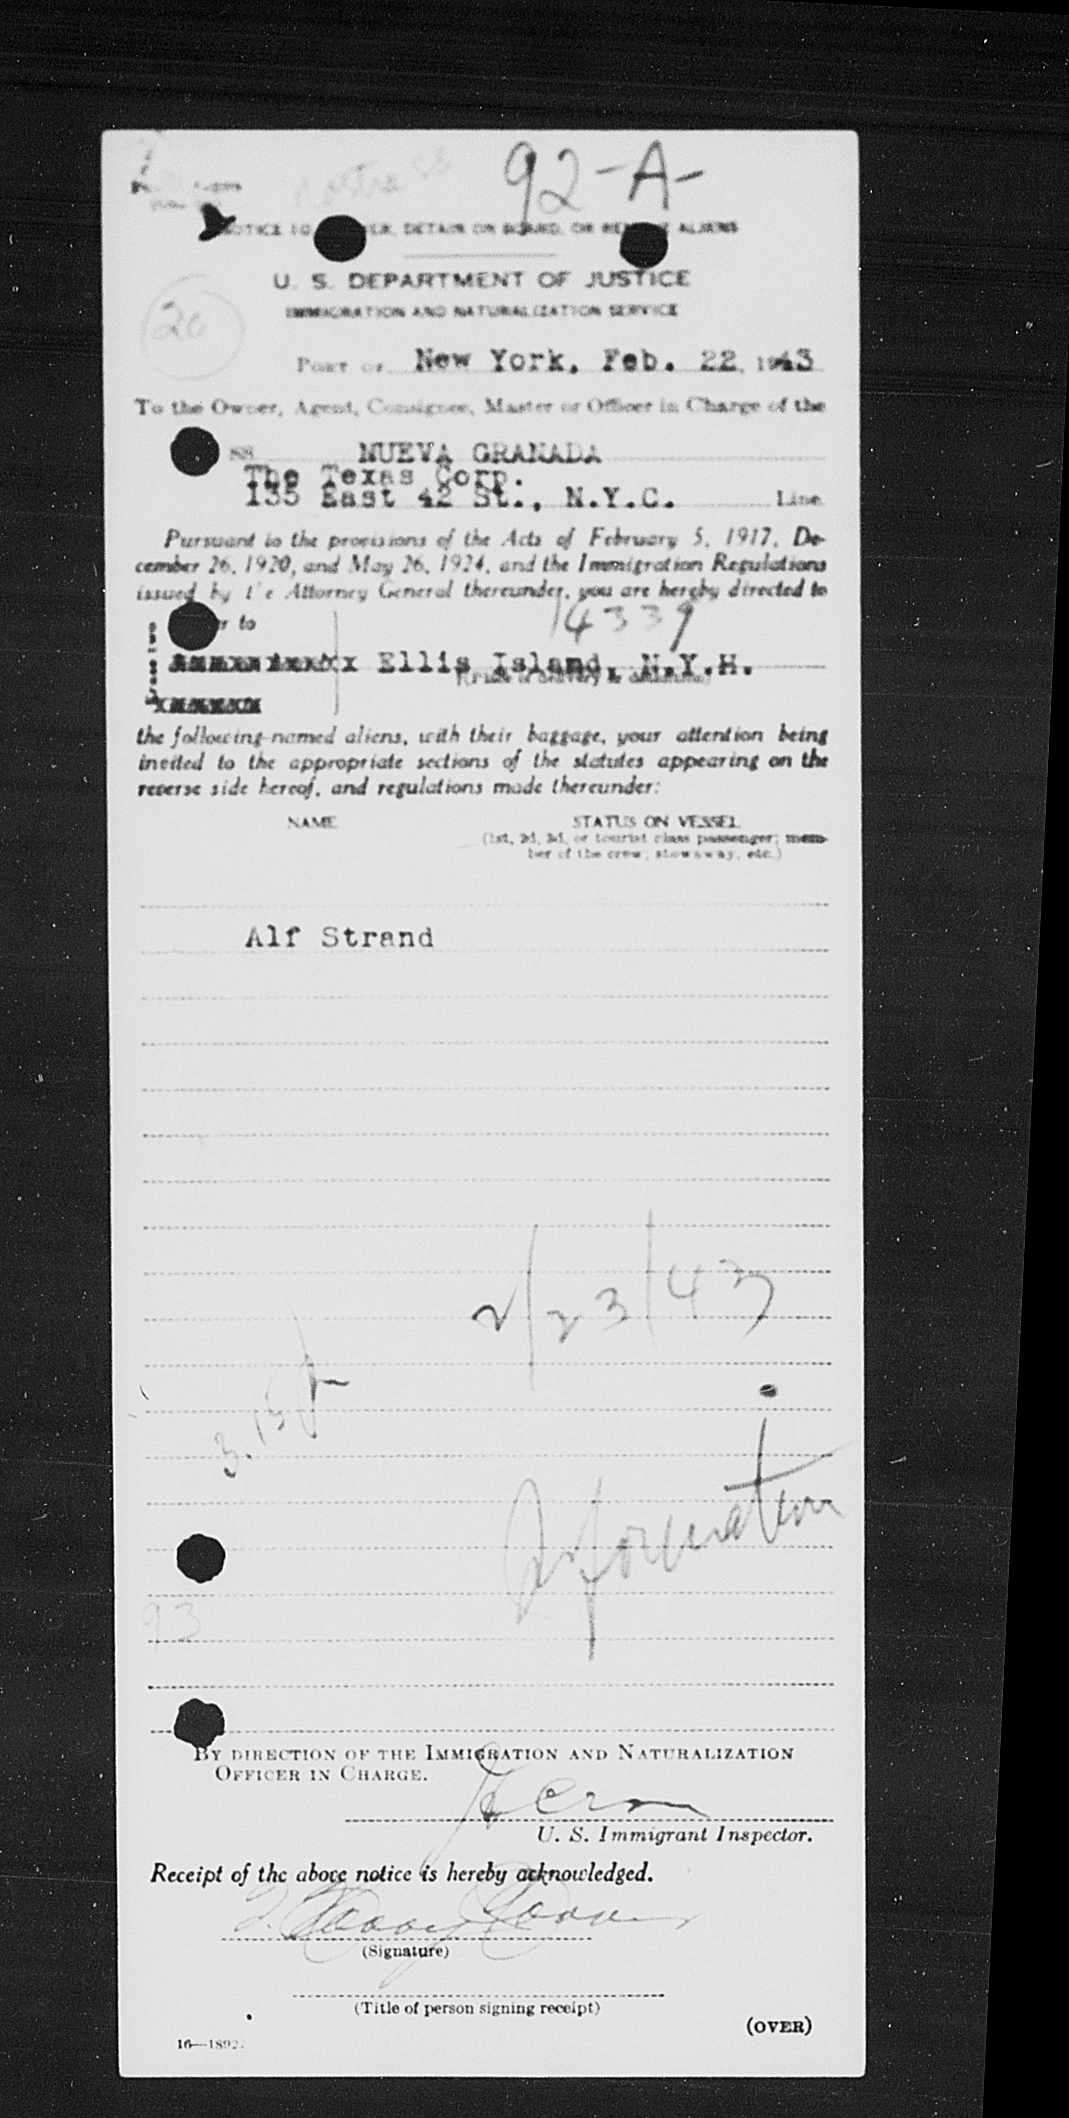 92-A-
NOTICE TO DETAIN ON BOARD, OR ALIENS
U. S. DEPARTMENT OF JUSTICE
IMMIGRATION AND NATURALIZATION SERVICE
20
PORT OF New York, Feb. 22, 1943
To the Owner, Agent, Consignee, Master or Officer in Charge of the
SS NUEVA GRANADA
The Texas Corp.
135 East 42 St., N.Y.C. Line
Pursuant to the provisions of the Acts of February 5, 1917, De-
cember 26, 1920, and May 26, 1924, and the Immigration Regulations
issued by t e Attorney General thereunder, you are hereby directed to
r to 14339
x Ellis Island, N.Y.H.
(Place of delivery or detention)
the following-named aliens, with their baggage, your attention being
invited to the appropriate sections of the statutes appearing on the
reverse side hereof, and regulations made thereunder:
NAME STATUS ON VESSEL
(1st, 2d, 3d, or tourist class passenger; mem-
ber of the crew; stowaway, etc.)
Alf Strand
2/23/43
Information
93
BY DIRECTION OF THE IMMIGRATION AND NATURALIZATION
OFFICER IN CHARGE.
U. S. Immigrant Inspector.
Receipt of the above notice is hereby acknowledged.
(Signature)
(Title of person signing receipt)
(OVER)